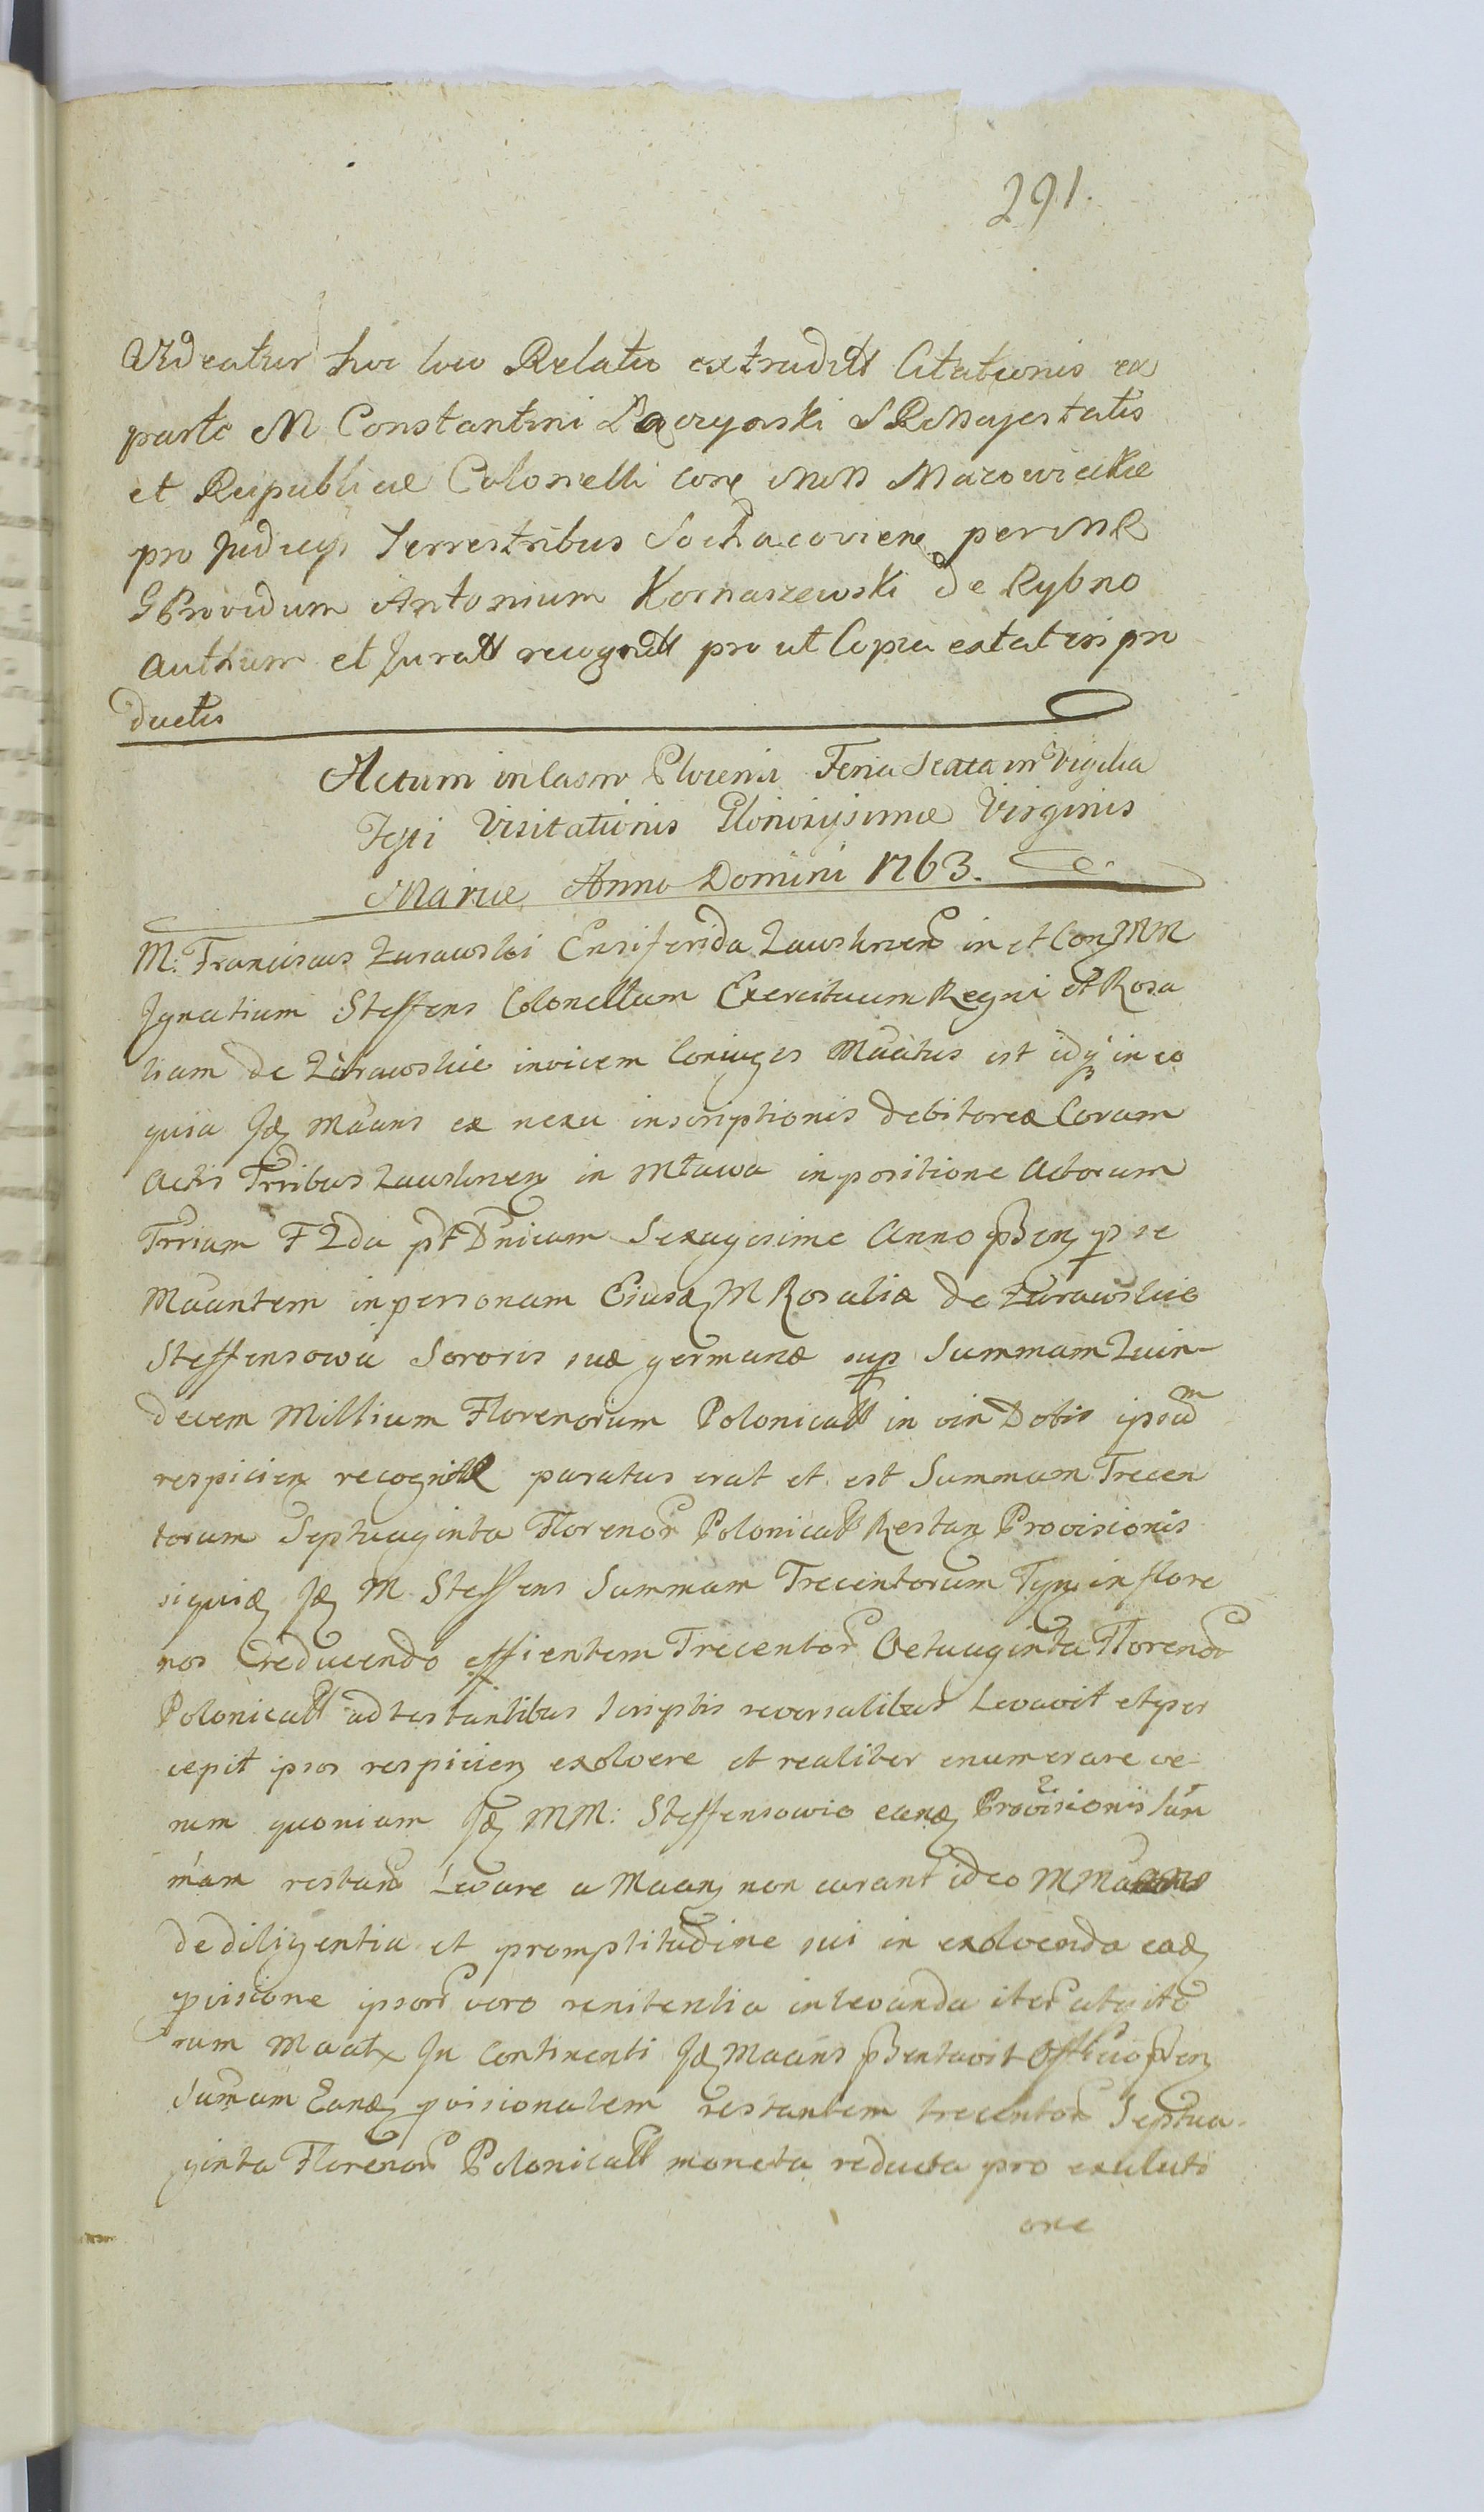 291.
Videatur hoc loco Relatio extradtt Citationis ex
parte M Constantini Łączynski S R Majestatis
et Reipublicæ Colonelli con MM Mazowieckie
pro Judicijs Terrestribus Sochacovien per MR
G Providum Antonium Kornaszewski de Rybno
authum et Juratt recogntt pro ut Copia extat in pro
ductis
Actum in Castro Plocensi Feria Sexta in Vigilia
Festi Visitationis Gloriosissimæ Virginis
Mariæ Anno Domini 1763.
M: Franciscus Zurawski Ensiferida Zawskrzen in et Con MM
Ignatium Steffens Colonellum Exercituum Regni et Rosa
liam de Zurawskie invicem Coniuges Maatus est idq in eo
quia Jd Maans ex nexu inscriptionis debitoreæ Coram
Actis Trribus Zawskrzen in Mława in positione Actorum
Trrium F 2da pt Dnicam Sexagesimæ Anno psen p se
Maantem in personam Eiusd M Rosaliæ de Zurawskie
Steffensowa Sororis suæ germanæ sup Summam Quin-
decem Millium Florenorum Polonicatt in vim Dotis ipsam
respicien recognitt paratus erat et est Summam Trecen
torum Septuaginta Florenor Polonicatt Restan Provisionis
siquid Jd M Steffens Summam Trecentorum Tynf in flore
nos reducendo efficientem Trecentor Octuaginta Florenor
Polonicatt adtestantibus Scriptis reversalibus Levavit et per
cepit ipsos respicien exolvere et realiter enumerare ve-
rum quoniam Jd MM: Steffensowie eand Provisionis Sum
mam restan Levare a Maan non curant ideo M Maans
de diligentia et promptitudine sui in exolvenda ead
pvisione ipsor vero renitentia in levanda iter atq ite
rum Maatr In Continenti Jd Maans psentavit Officio psen
Summam Eand pvisionalem restantem trecentor Septua-
ginta Florenor Polonicatt moneta reducta pro exoluti
one